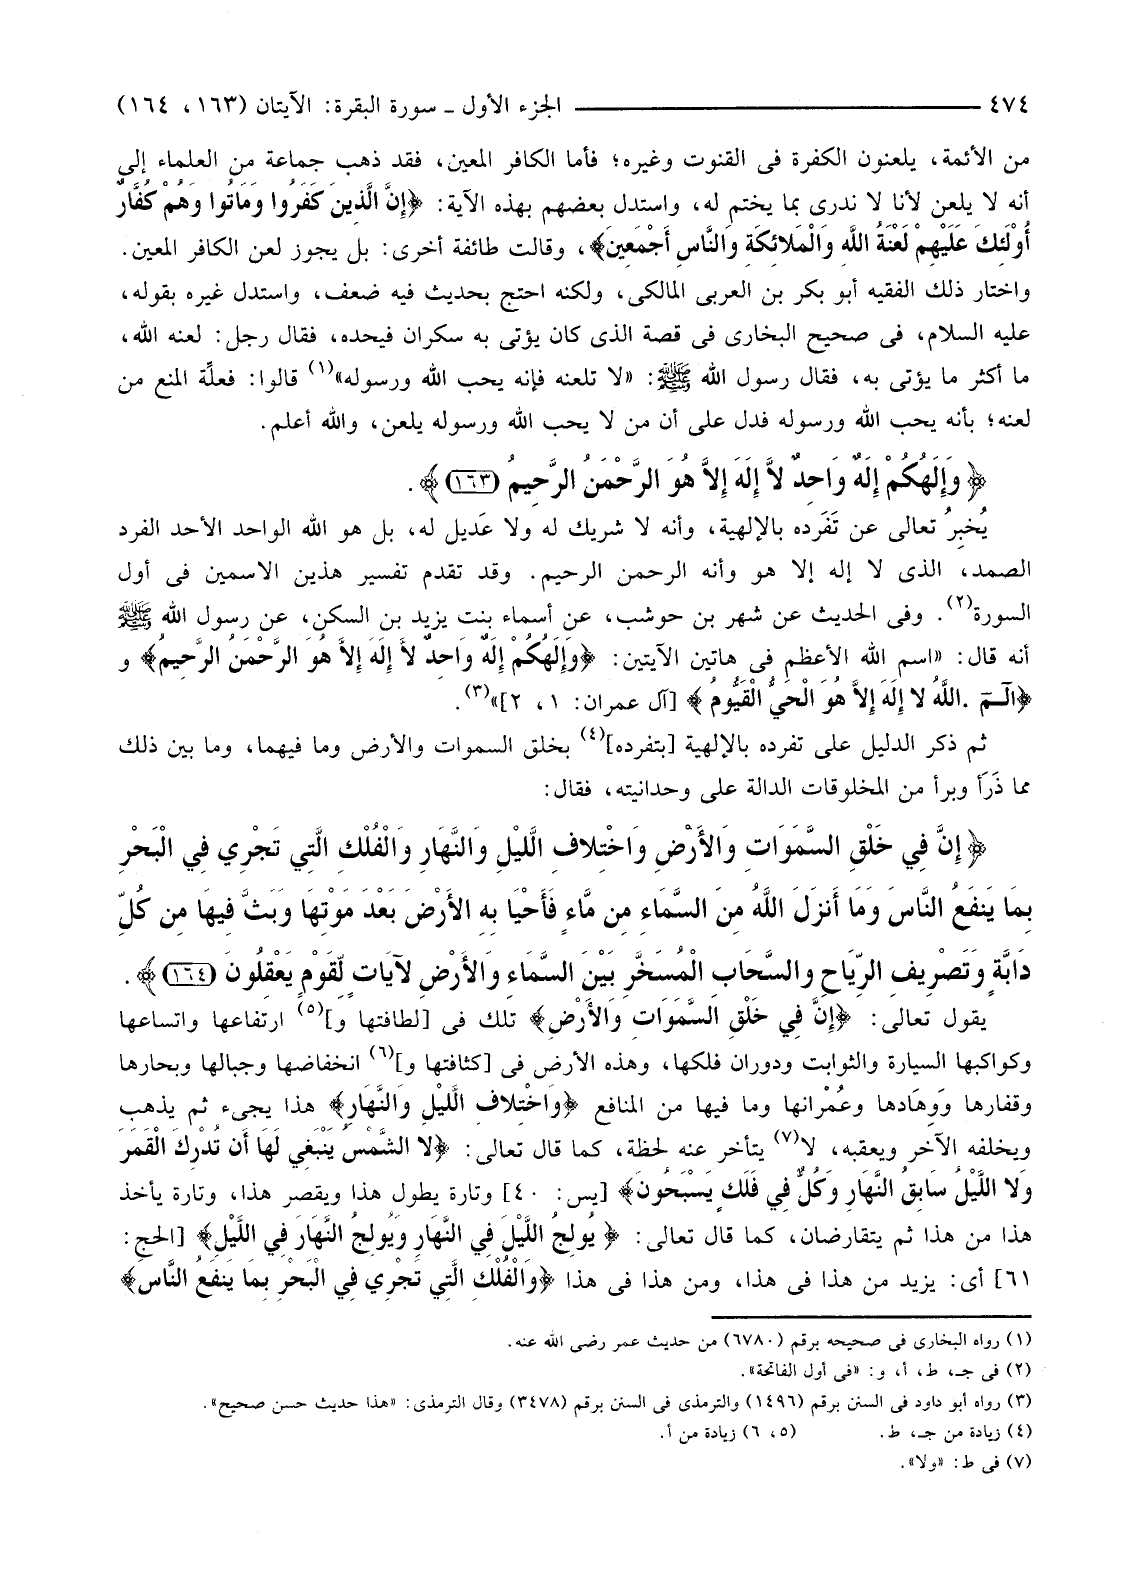 ٤٧٤ ــــــ الجزء الأول ـ سورة البقرة: الآيتان (١٦٣، ١٦٤)
من الأئمة، يلعنون الكفرة فى القنوت وغيره؛ فأما الكافر المعين، فقد ذهب جماعة من العلماء إلى
أنه لا يلعن لأنا لا ندرى بما يختم له، واستدل بعضهم بهذه الآية: ﴿إِنَّ الَّذِينَ كَفَرُوا وَمَاتُوا وَهُمْ كُفَّارٌ
أُوْلَئِكَ عَلَيْهِمْ لَعْنَةُ اللَّهِ وَالْمَلائِكَةِ وَالنَّاسِ أَجْمَعِينَ﴾، وقالت طائفة أخرى: بل يجوز لعن الكافر المعين.
واختار ذلك الفقيه أبو بكر بن العربى المالكى، ولكنه احتج بحديث فيه ضعف، واستدل غيره بقوله،
عليه السلام، فى صحيح البخارى فى قصة الذى كان يؤتى به سكران فيحده، فقال رجل: لعنه الله،
ما أكثر ما يؤتى به، فقال رسول الله ﷺ: «لا تلعنه فإنه يحب الله ورسوله»(١) قالوا: فعلَّة المنع من
لعنه؛ بأنه يحب الله ورسوله فدل على أن من لا يحب الله ورسوله يلعن، والله أعلم.
﴿وَإِلَهُكُمْ إِلَهٌ وَاحِدٌ لاَّ إِلَهَ إِلاَّ هُوَ الرَّحْمَنُ الرَّحِيمُ (١٦٣)﴾.
يُخبِرُ تعالى عن تَفَرده بالإلهية، وأنه لا شريك له ولا عَديل له، بل هو الله الواحد الأحد الفرد
الصمد، الذى لا إله إلا هو وأنه الرحمن الرحيم. وقد تقدم تفسير هذين الاسمين فى أول
السورة(٢). وفى الحديث عن شهر بن حوشب، عن أسماء بنت يزيد بن السكن، عن رسول الله ﷺ
أنه قال: «اسم الله الأعظم فى هاتين الآيتين: ﴿وَإِلَهُكُمْ إِلَهٌ وَاحِدٌ لاَّ إِلَهَ إِلاَّ هُوَ الرَّحْمَنُ الرَّحِيمُ﴾ و
﴿الٓـمٓ .اللَّهُ لا إِلَهَ إِلاَّ هُوَ الْحَيُّ الْقَيُّومُ﴾ [آل عمران: ١، ٢]»(٣).
ثم ذكر الدليل على تفرده بالإلهية [بتفرده](٤) بخلق السموات والأرض وما فيهما، وما بين ذلك
مما ذَرَأ وبرأ من المخلوقات الدالة على وحدانيته، فقال:
﴿إِنَّ فِي خَلْقِ السَّمَوَاتِ وَالأَرْضِ وَاخْتِلافِ اللَّيْلِ وَالنَّهَارِ وَالْفُلْكِ الَّتِي تَجْرِي فِي الْبَحْرِ
بِمَا يَنفَعُ النَّاسَ وَمَا أَنزَلَ اللَّهُ مِنَ السَّمَاءِ مِن مَّاءٍ فَأَحْيَا بِهِ الأَرْضَ بَعْدَ مَوْتِهَا وَبَثَّ فِيهَا مِن كُلِّ
دَابَّةٍ وَتَصْرِيفِ الرِّيَاحِ وَالسَّحَابِ الْمُسَخَّرِ بَيْنَ السَّمَاءِ وَالأَرْضِ لآيَاتٍ لِّقَوْمٍ يَعْقِلُونَ (١٦٤)﴾.
يقول تعالى: ﴿إِنَّ فِي خَلْقِ السَّمَوَاتِ وَالأَرْضِ﴾ تلك فى [لطافتها و](٥) ارتفاعها واتساعها
وكواكبها السيارة والثوابت ودوران فلكها، وهذه الأرض فى [كثافتها و](٦) انخفاضها وجبالها وبحارها
وقفارها وَوِهَادها وعُمْرانها وما فيها من المنافع ﴿وَاخْتِلافِ اللَّيْلِ وَالنَّهَارِ﴾ هذا يجىء ثم يذهب
ويخلفه الآخر ويعقبه، لا(٧) يتأخر عنه لحظة، كما قال تعالى: ﴿لا الشَّمْسُ يَنْبَغِي لَهَا أَن تُدْرِكَ الْقَمَرَ
وَلا اللَّيْلُ سَابِقُ النَّهَارِ وَكُلٌّ فِي فَلَكٍ يَسْبَحُونَ﴾ [يس: ٤٠] وتارة يطول هذا ويقصر هذا، وتارة يأخذ
هذا من هذا ثم يتقارضان، كما قال تعالى: ﴿يُولِجُ اللَّيْلَ فِي النَّهَارِ وَيُولِجُ النَّهَارَ فِي اللَّيْلِ﴾ [الحج:
٦١] أى: يزيد من هذا فى هذا، ومن هذا فى هذا ﴿وَالْفُلْكِ الَّتِي تَجْرِي فِي الْبَحْرِ بِمَا يَنفَعُ النَّاسَ﴾
(١) رواه البخارى فى صحيحه برقم (٦٧٨٠) من حديث عمر رضى الله عنه.
(٢) فى جـ، ط، أ، و: «فى أول الفاتحة».
(٣) رواه أبو داود فى السنن برقم (١٤٩٦) والترمذى فى السنن برقم (٣٤٧٨) وقال الترمذى: «هذا حديث حسن صحيح».
(٤) زيادة من جـ، ط. (٥، ٦) زيادة من أ.
(٧) فى ط: «ولا».